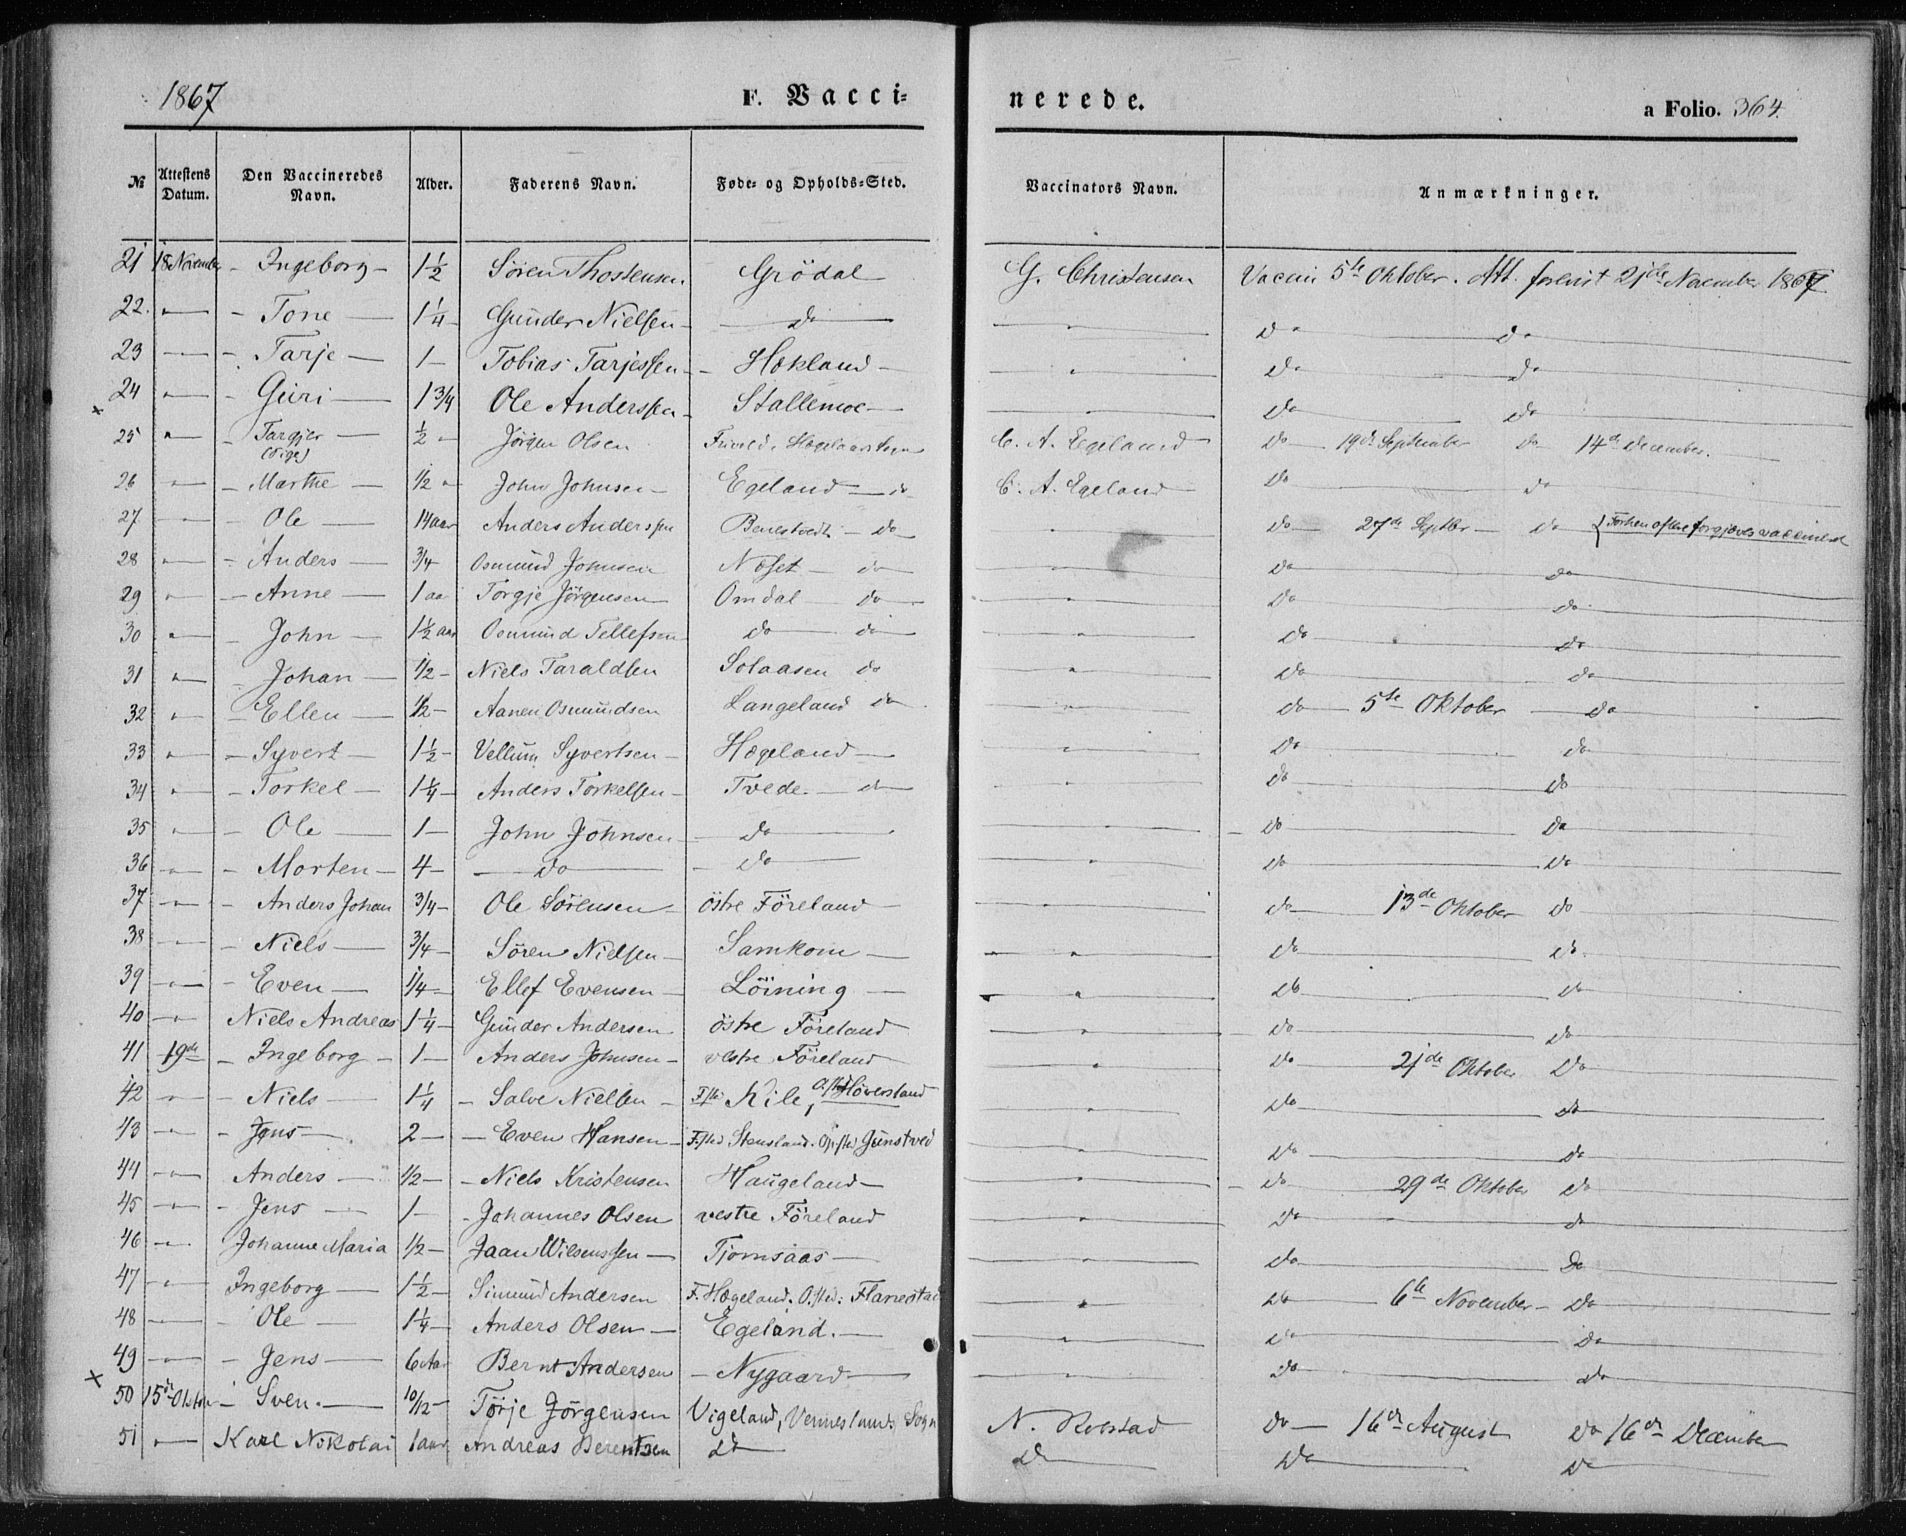 1867 F. Vacci= nerede. a Folio. 364.
№ Attestens Datum. Den Vaccineredes Navn. Alder. Faderens Navn. Føde- og Opholds-Sted. Vaccinators Navn. Anmærkninger.
21 18 November - Ingeborg - 1½ Sören Thostensen Grödal G. Christensen Vaccin 5te Oktober. Att. forevist 21de November 1867
22. " - Tone - 1¼ - Gunder Nielsen - do " do do
23 " - Tarje - 1 - Tobias Tarjessen - Hækland - " do do
24 " - Guri - 1¾ Ole Anderssen - Stallemoe - do do
× 25 " - Targjer (Pige) ½ " Jörgen Olsen Hægelands Sogn C. A. Egeland do 19de September do 14de December.
26 " - Marthe - ½ " John Johnsen - Egeland - do C. A. Egeland do do
27 " - Ole - 14 aar Anders Anderssen Benestvedt - do " do 27de Septbr - do {Forhen oftere forgjæves vaccineret
28 " - Anders - ¾ Osmund Johnsen Næset - do " do do
29 " - Anne - 1 aar Torgje Jörgensen Omdal - do " do do
30 " - John - 1½ aar Osmund Tellefsen do do " do do
31 " Johan - ½ - Niels Taraldsen Solaasen do " do do
32 " - Ellen - ½ - Aanen Osmundsen Langeland do " do 5te Oktober - do
33 " - Syvert - 1½ - Vellum Syvertsen - Hægeland - " do do
34 " - Torkel - 1¼ - Anders Torkelsen - Tvede. - do " do do
35 " - Ole - 1 - John Johnsen - do " - do do
36 " - Morten - 4 - do - do " do do
37 " - Anders Johan ¾ - Ole Sörensen östre Föreland " do 13de Oktober do
38 " - Niels - ¾ - Sören Nielsen - Samkom - " do do
39 " - Even - ¼ - Ellef Evensen - Löining - " do do
40 " Niels Andreas 1¼ - Gunder Andersen östre Föreland " do do
41 19de - Ingeborg - 1 - Anders Johnsen - vestre Föreland " do 21de Oktober do
42 " - Niels - 1¼ - Salve Nielsen - F.sted Kile, O.sted Höverstand " do do
43 " - Jens - 2 - - Even Hansen - F.sted Stensland. Op.sted Gunstved " do do
44 " Anders - ½ - - Niels Kristensen Haugeland - " - do 29de Oktober do
45 " - Jens - 1 - - Johannes Olsen vestre Föreland " do do
46 " Johanne Maria ½ - Jaan - Tjomsaas - " do do
47 " Ingeborg - 1½ - Simund Andersen F. Hægeland. O.sted: " do 6te November - do
48 " - Ole - 1¼ - Anders Olsen - Egeland. - " do do
49 " - Jens - 6 Aar Bernt Andersen - Nygaard - " do do
× 50 15de Oktober - Sven. - 10/12 - Törje Jörgensen Vigeland, Vennesland Sogn N. Robstad do - 16de August do 16de December
51 " Karl Nikolai 1 aar Andreas Berentsen do do do do